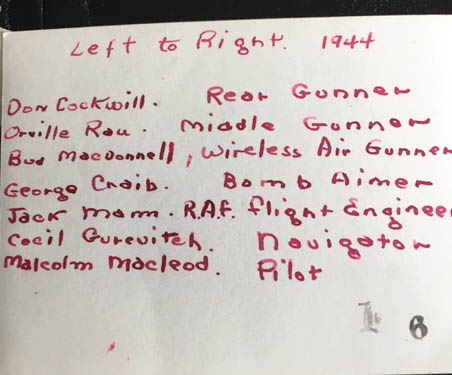 Left to Right. 1944
Don Cockwill. Rear Gunner
Orville Rau. Middle Gunner
Bud MacDonnell, Wireless Air Gunner
George Craib. Bomb Aimer
Jack Mann. R.A.F. Flight Enginee
Cecil Gurevitch. Navigator
Malcolm Macleod. Pilot
6